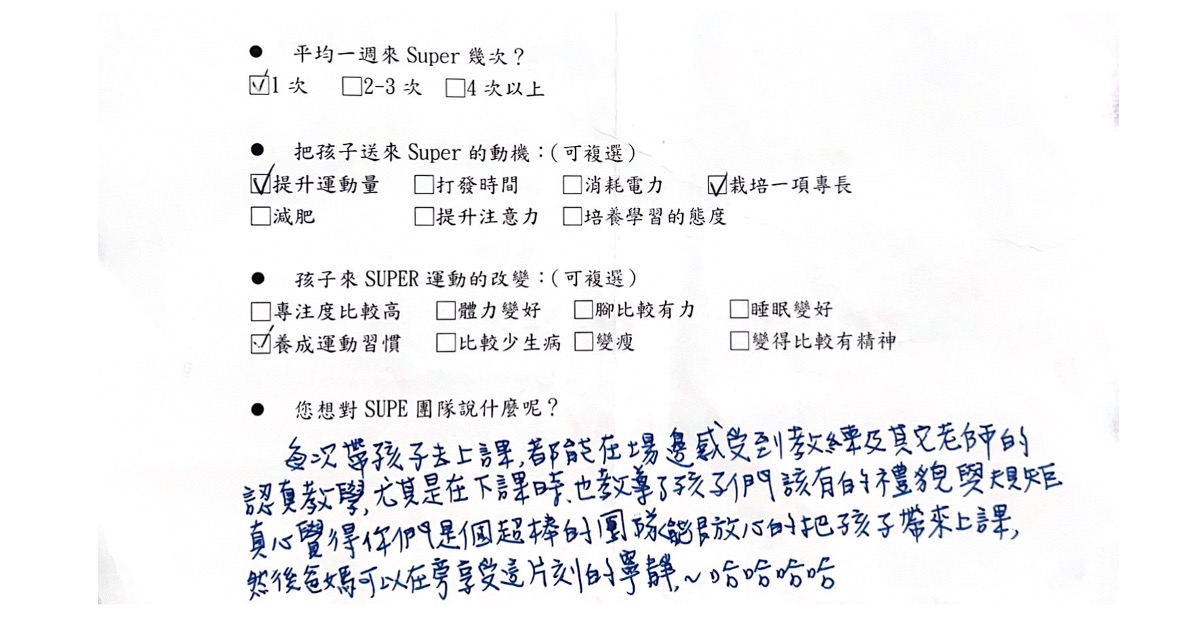 ● 平均一週來 Super 幾次？
☑1 次 □2-3 次 □4 次以上
● 把孩子送來 Super 的動機：(可複選)
☑提升運動量 □打發時間 □消耗電力 ☑栽培一項專長
□減肥 □提升注意力 □培養學習的態度
● 孩子來 SUPER 運動的改變：(可複選)
□專注度比較高 □體力變好 □腳比較有力 □睡眠變好
☑養成運動習慣 □比較少生病 □變瘦 □變得比較有精神
● 您想對 SUPE 團隊說什麼呢？
每次帶孩子去上課,都能在場邊感受到教練及其它老師的
認真教學,尤其是在下課時、也教導了孩子們該有的禮貌與規矩
真心覺得你們是個超棒的團隊能很放心的把孩子帶來上課,
然後爸媽可以在旁享受這片刻的寧靜,~哈哈哈哈